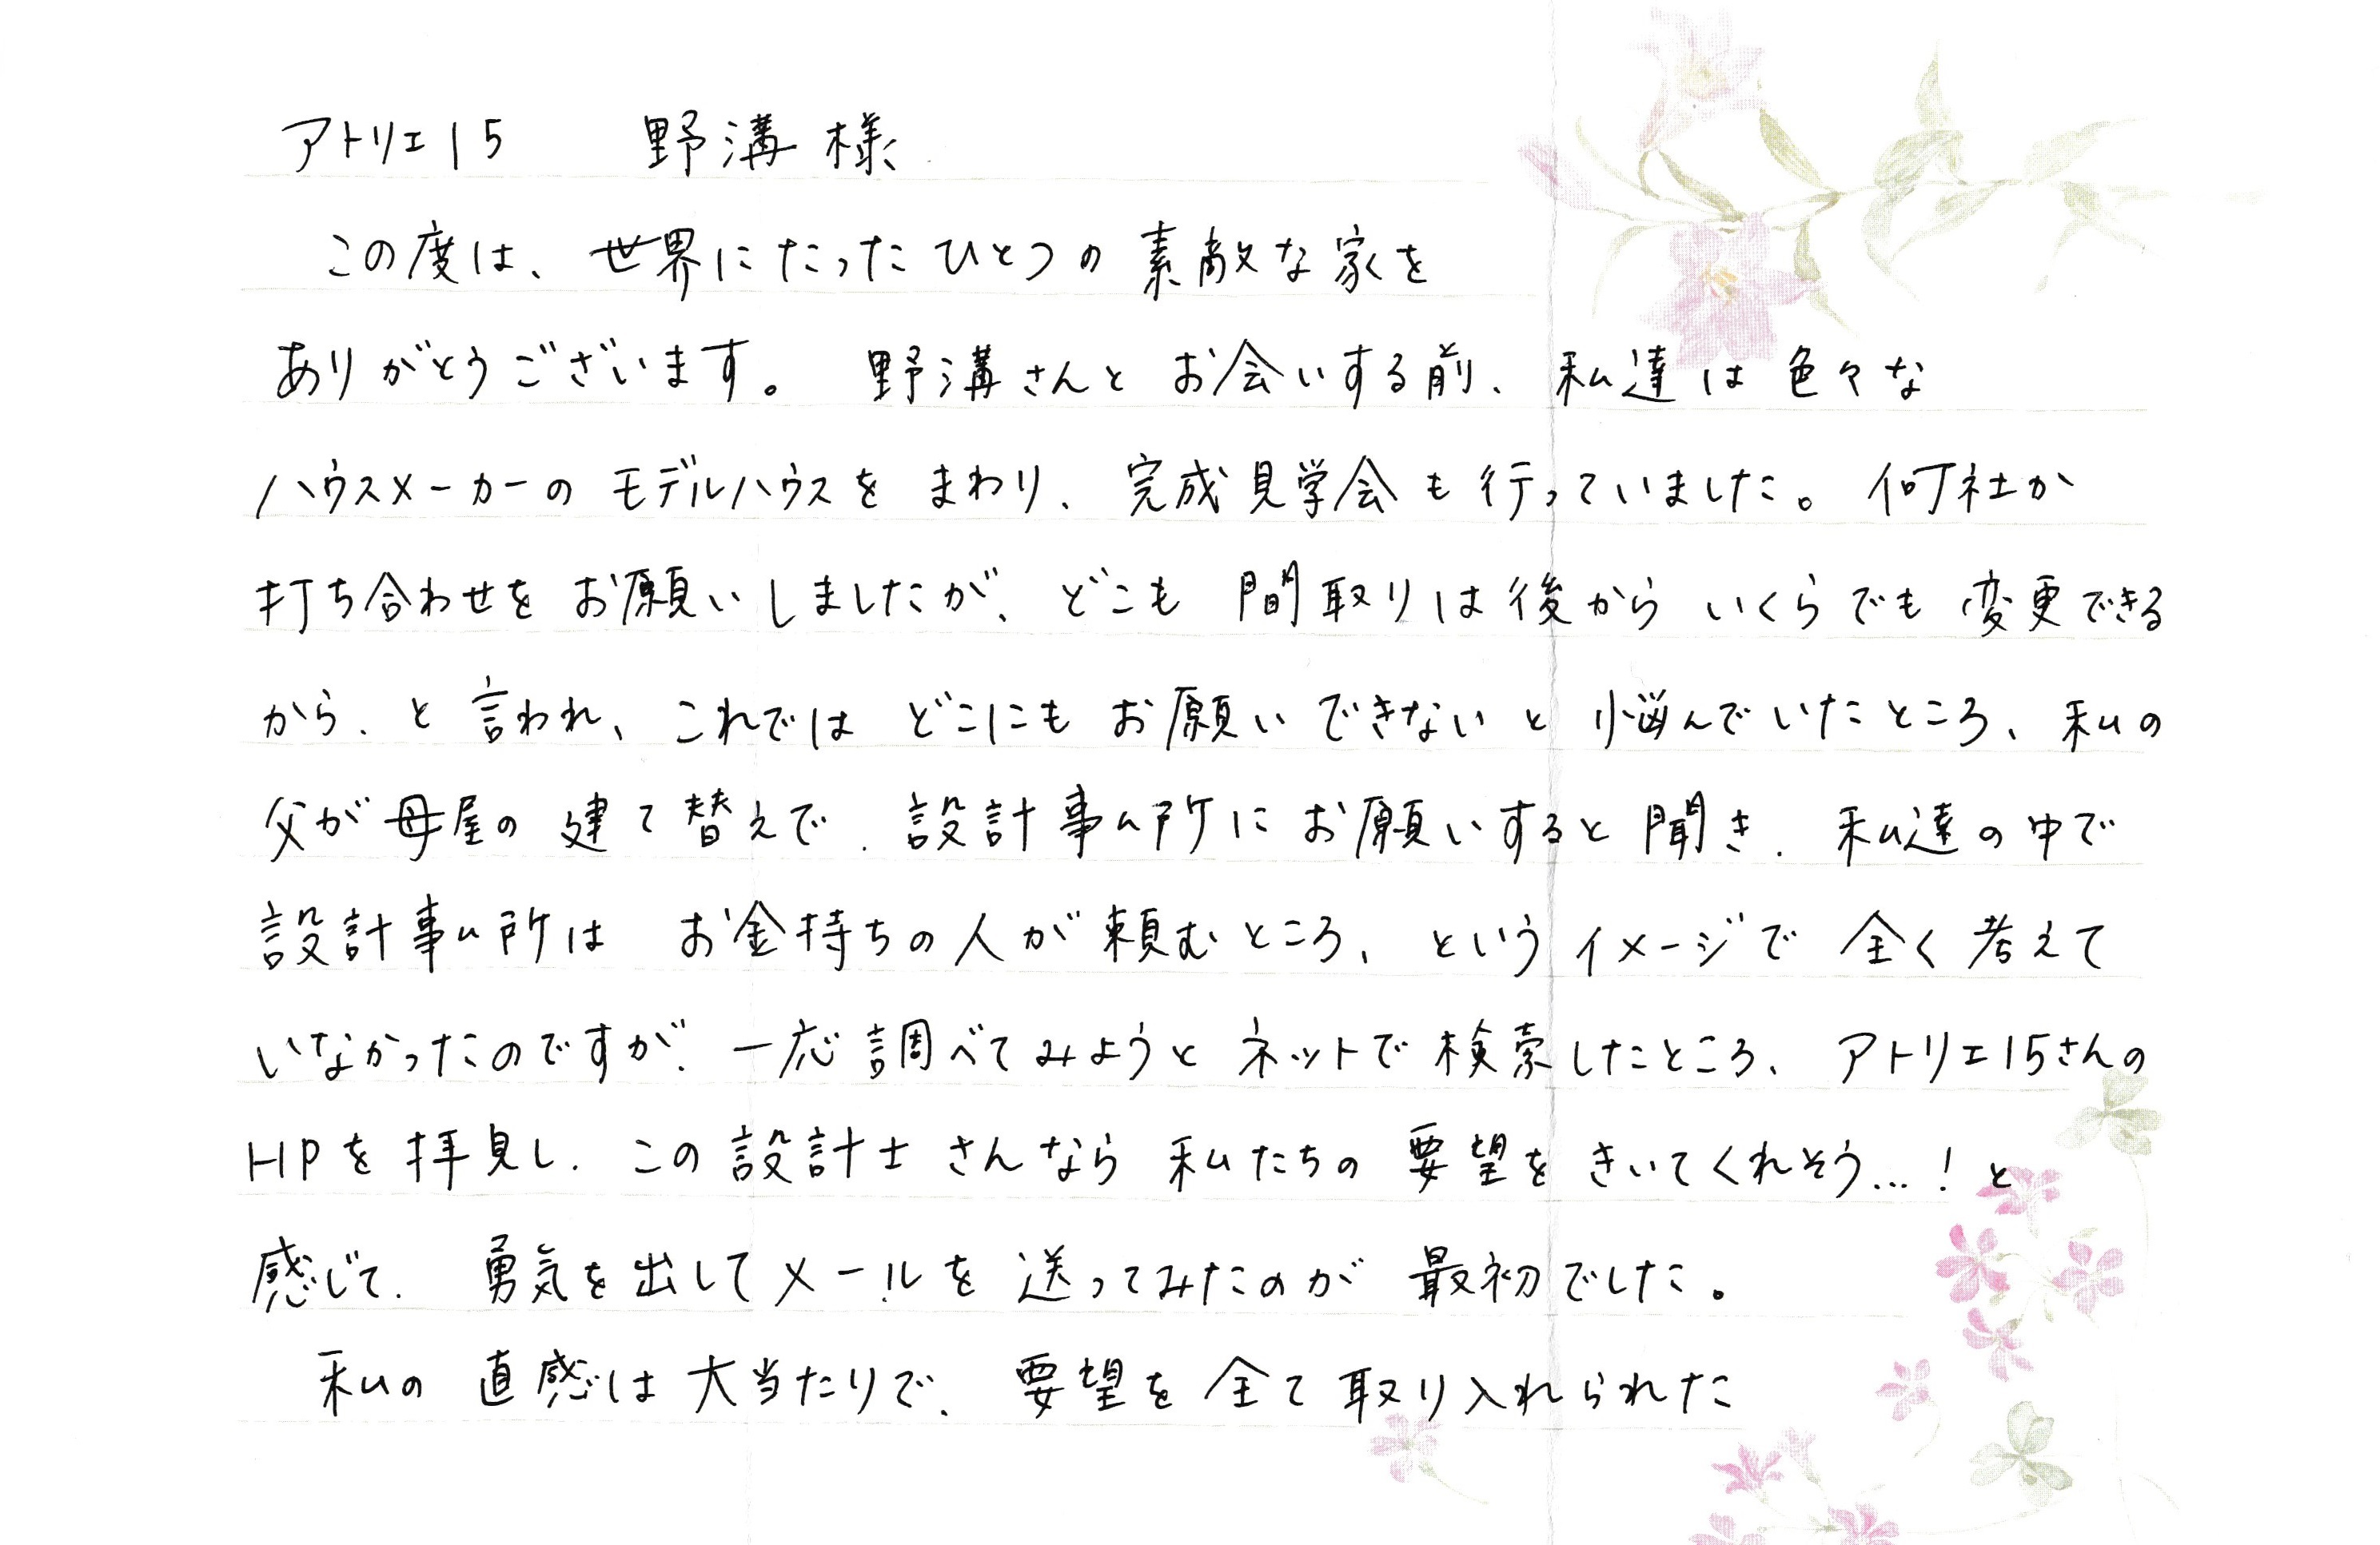 アトリエ15　野溝様
この度は、世界にたったひとつの素敵な家を
ありがとうございます。野溝さんとお会いする前、私達は色々な
ハウスメーカーのモデルハウスをまわり、完成見学会も行っていました。何社か
打ち合わせをお願いしましたが、どこも間取りは後からいくらでも変更できる
から、と言われ、これではどこにもお願いできないと悩んでいたところ、私の
父が母屋の建て替えで、設計事ム所にお願いすると聞き、私達の中で
設計事ム所はお金持ちの人が頼むところ、というイメージで全く考えて
いなかったのですが、一応調べてみようとネットで検索したところ、アトリエ15さんの
HPを拝見し、この設計士さんなら私たちの要望をきいてくれそう…!と
感じて、勇気を出してメールを送ってみたのが最初でした。
私の直感は大当たりで、要望を全て取り入れられた